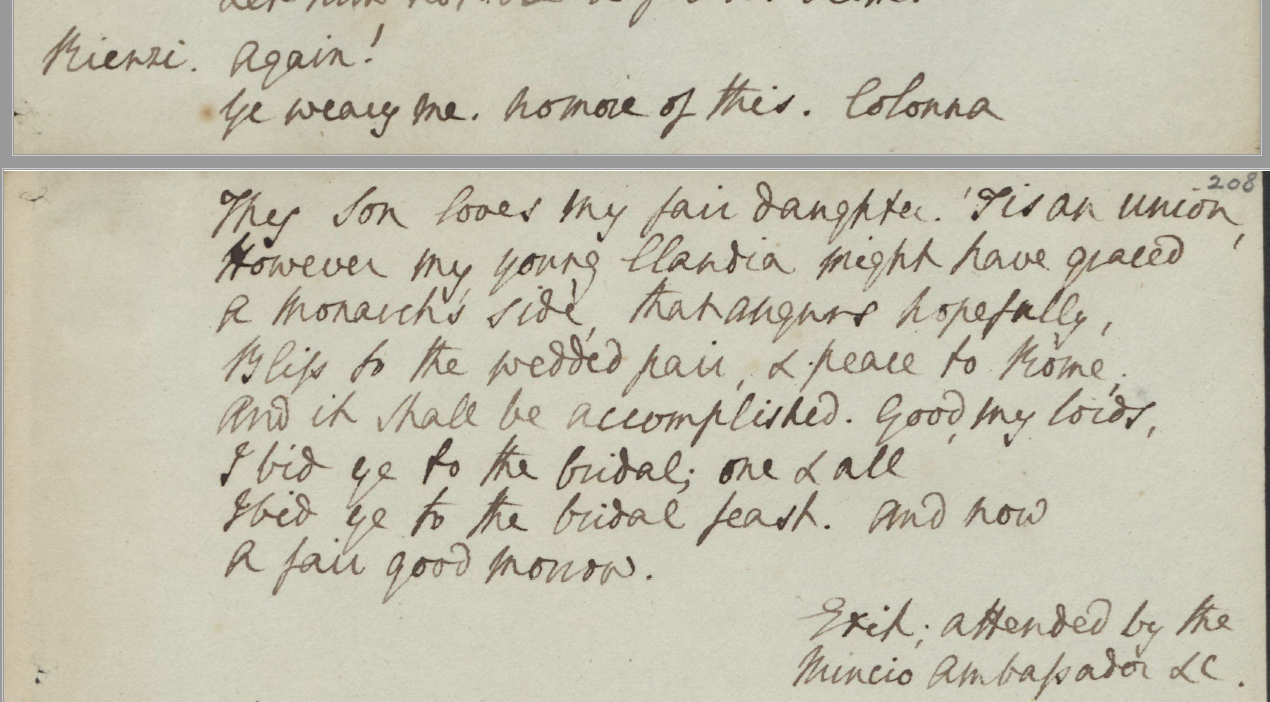 Rienzi. Again!
Ye weary me. No more of this. Colonna
208
Thy Son loves my fair daughter. 'Tis an union,
However my young Claudia might have graced
A Monarch's side, that augurs hopefully,
Bliſs to the wedded pair, & peace to Rome,
And it shall be accomplished. Good, my lords,
I bid ye to the bridal; one & all
I bid ye to the bridal feast. And now
A fair good morrow.
Exit, attended by the
Nuncio Ambaſsador &c.